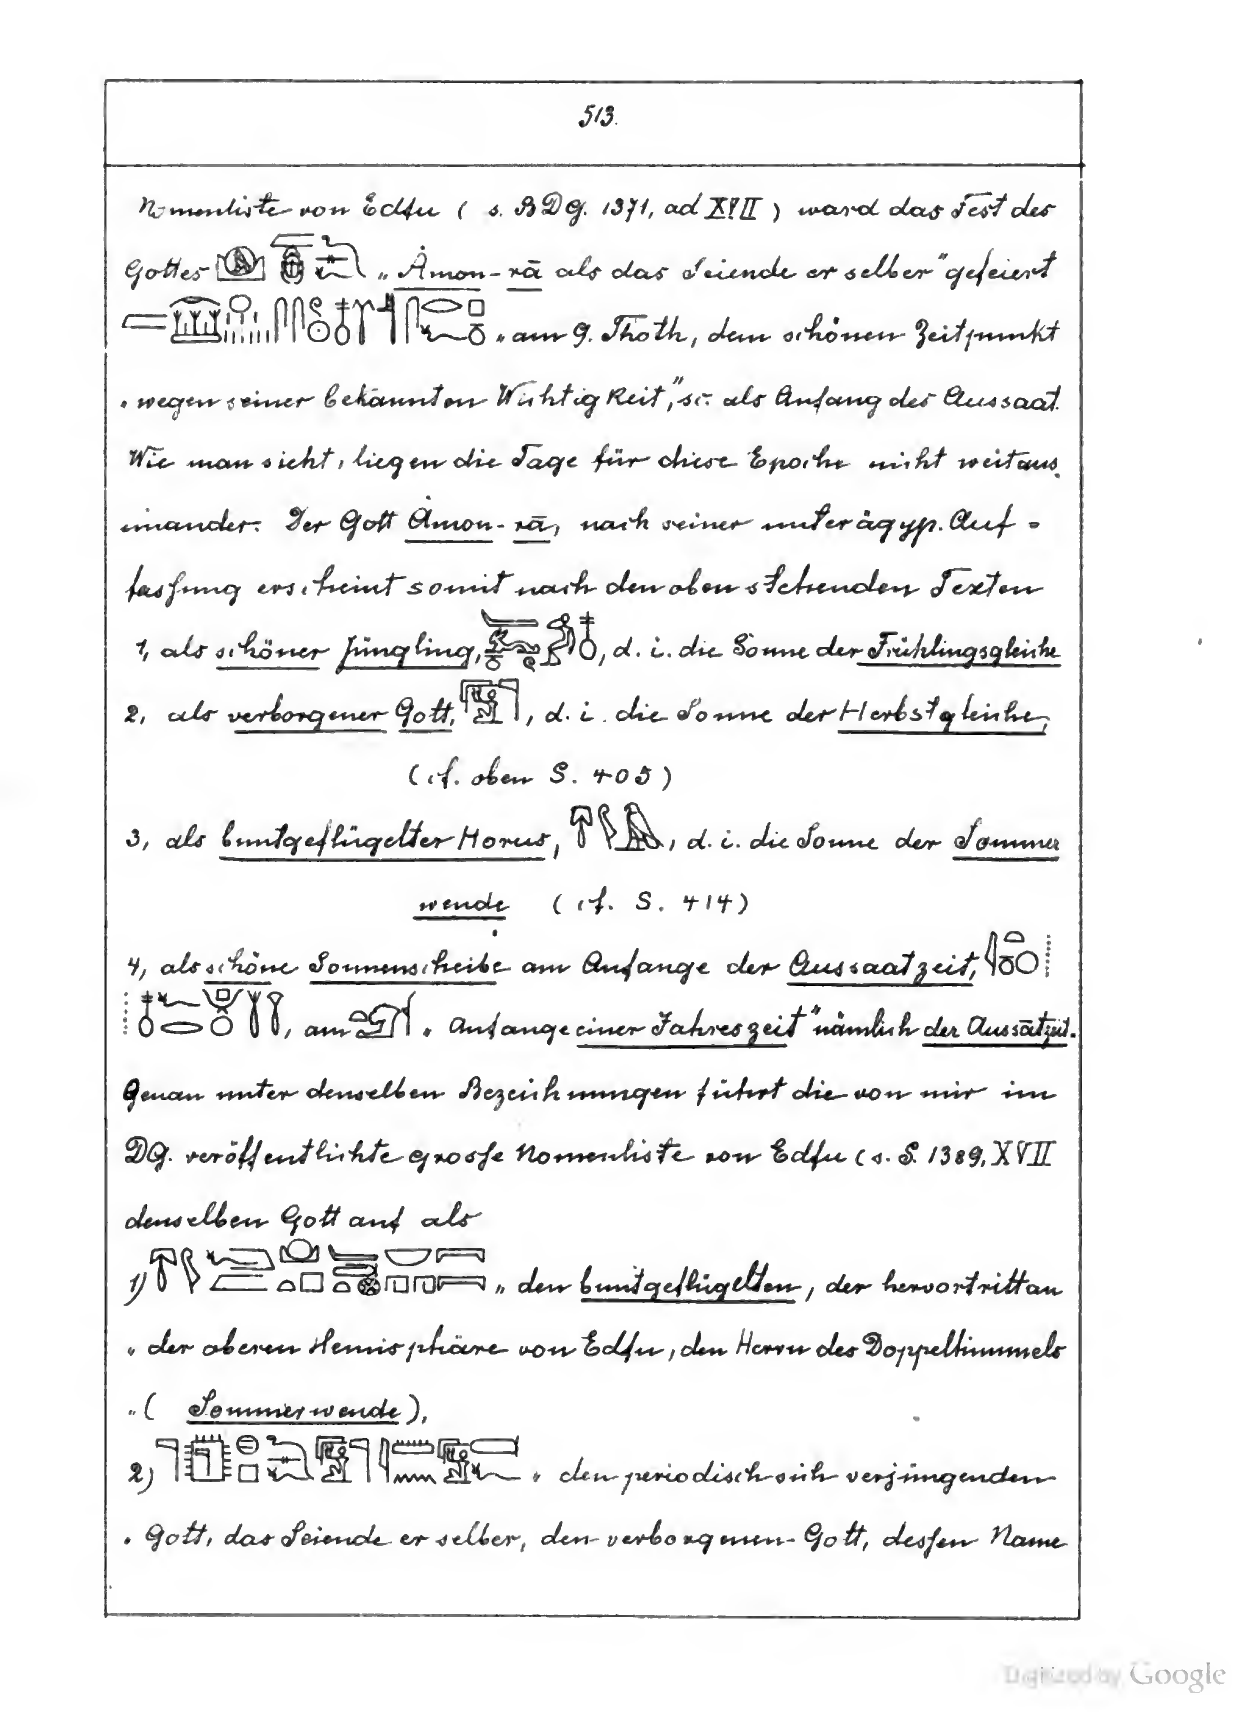 513.
Nomenliste von Edfu ( s. BDG. 1371, ad XVII ) ward das Fest des
Gottes „Ȧmon-rā als das Seiende er selber" gefeiert
„am 9. Thoth, dem schönen Zeitpunkt
„wegen seiner bekannten Wichtigkeit", sc. als Anfang der Aussaat.
Wie man sieht, liegen die Tage für diese Epoche nicht weit aus
einander. Der Gott Ȧmon-rā, nach seiner unterägyp. Auf-
fassung erscheint somit nach den oben stehenden Texten
1, als schöner Jüngling, , d. i. die Sonne der Frühlingsgleiche
2, als verborgener Gott, , d. i. die Sonne der Herbstgleiche,
(cf. oben S. 405)
3, als buntgeflügelter Horus, , d. i. die Sonne der Sommer
wende (cf. S. 414)
4, als schöne Sonnenscheibe am Anfange der Aussaatzeit,
, am „Anfange einer Jahreszeit" nämlich der Aussatzeit.
Genau unter denselben Bezeichnungen führt die von mir im
DG. veröffentlichte grosse Nomenliste von Edfu (s. S. 1389, XVII
denselben Gott auf als
1) „den buntgeflügelten, der hervortritt an
„der oberen Hemisphäre von Edfu, den Herrn des Doppelhimmels
„( Sommerwende),
2) „den periodisch sich verjüngenden
„Gott, das Seiende er selber, den verborgenen Gott, dessen Name
Digitized by Google